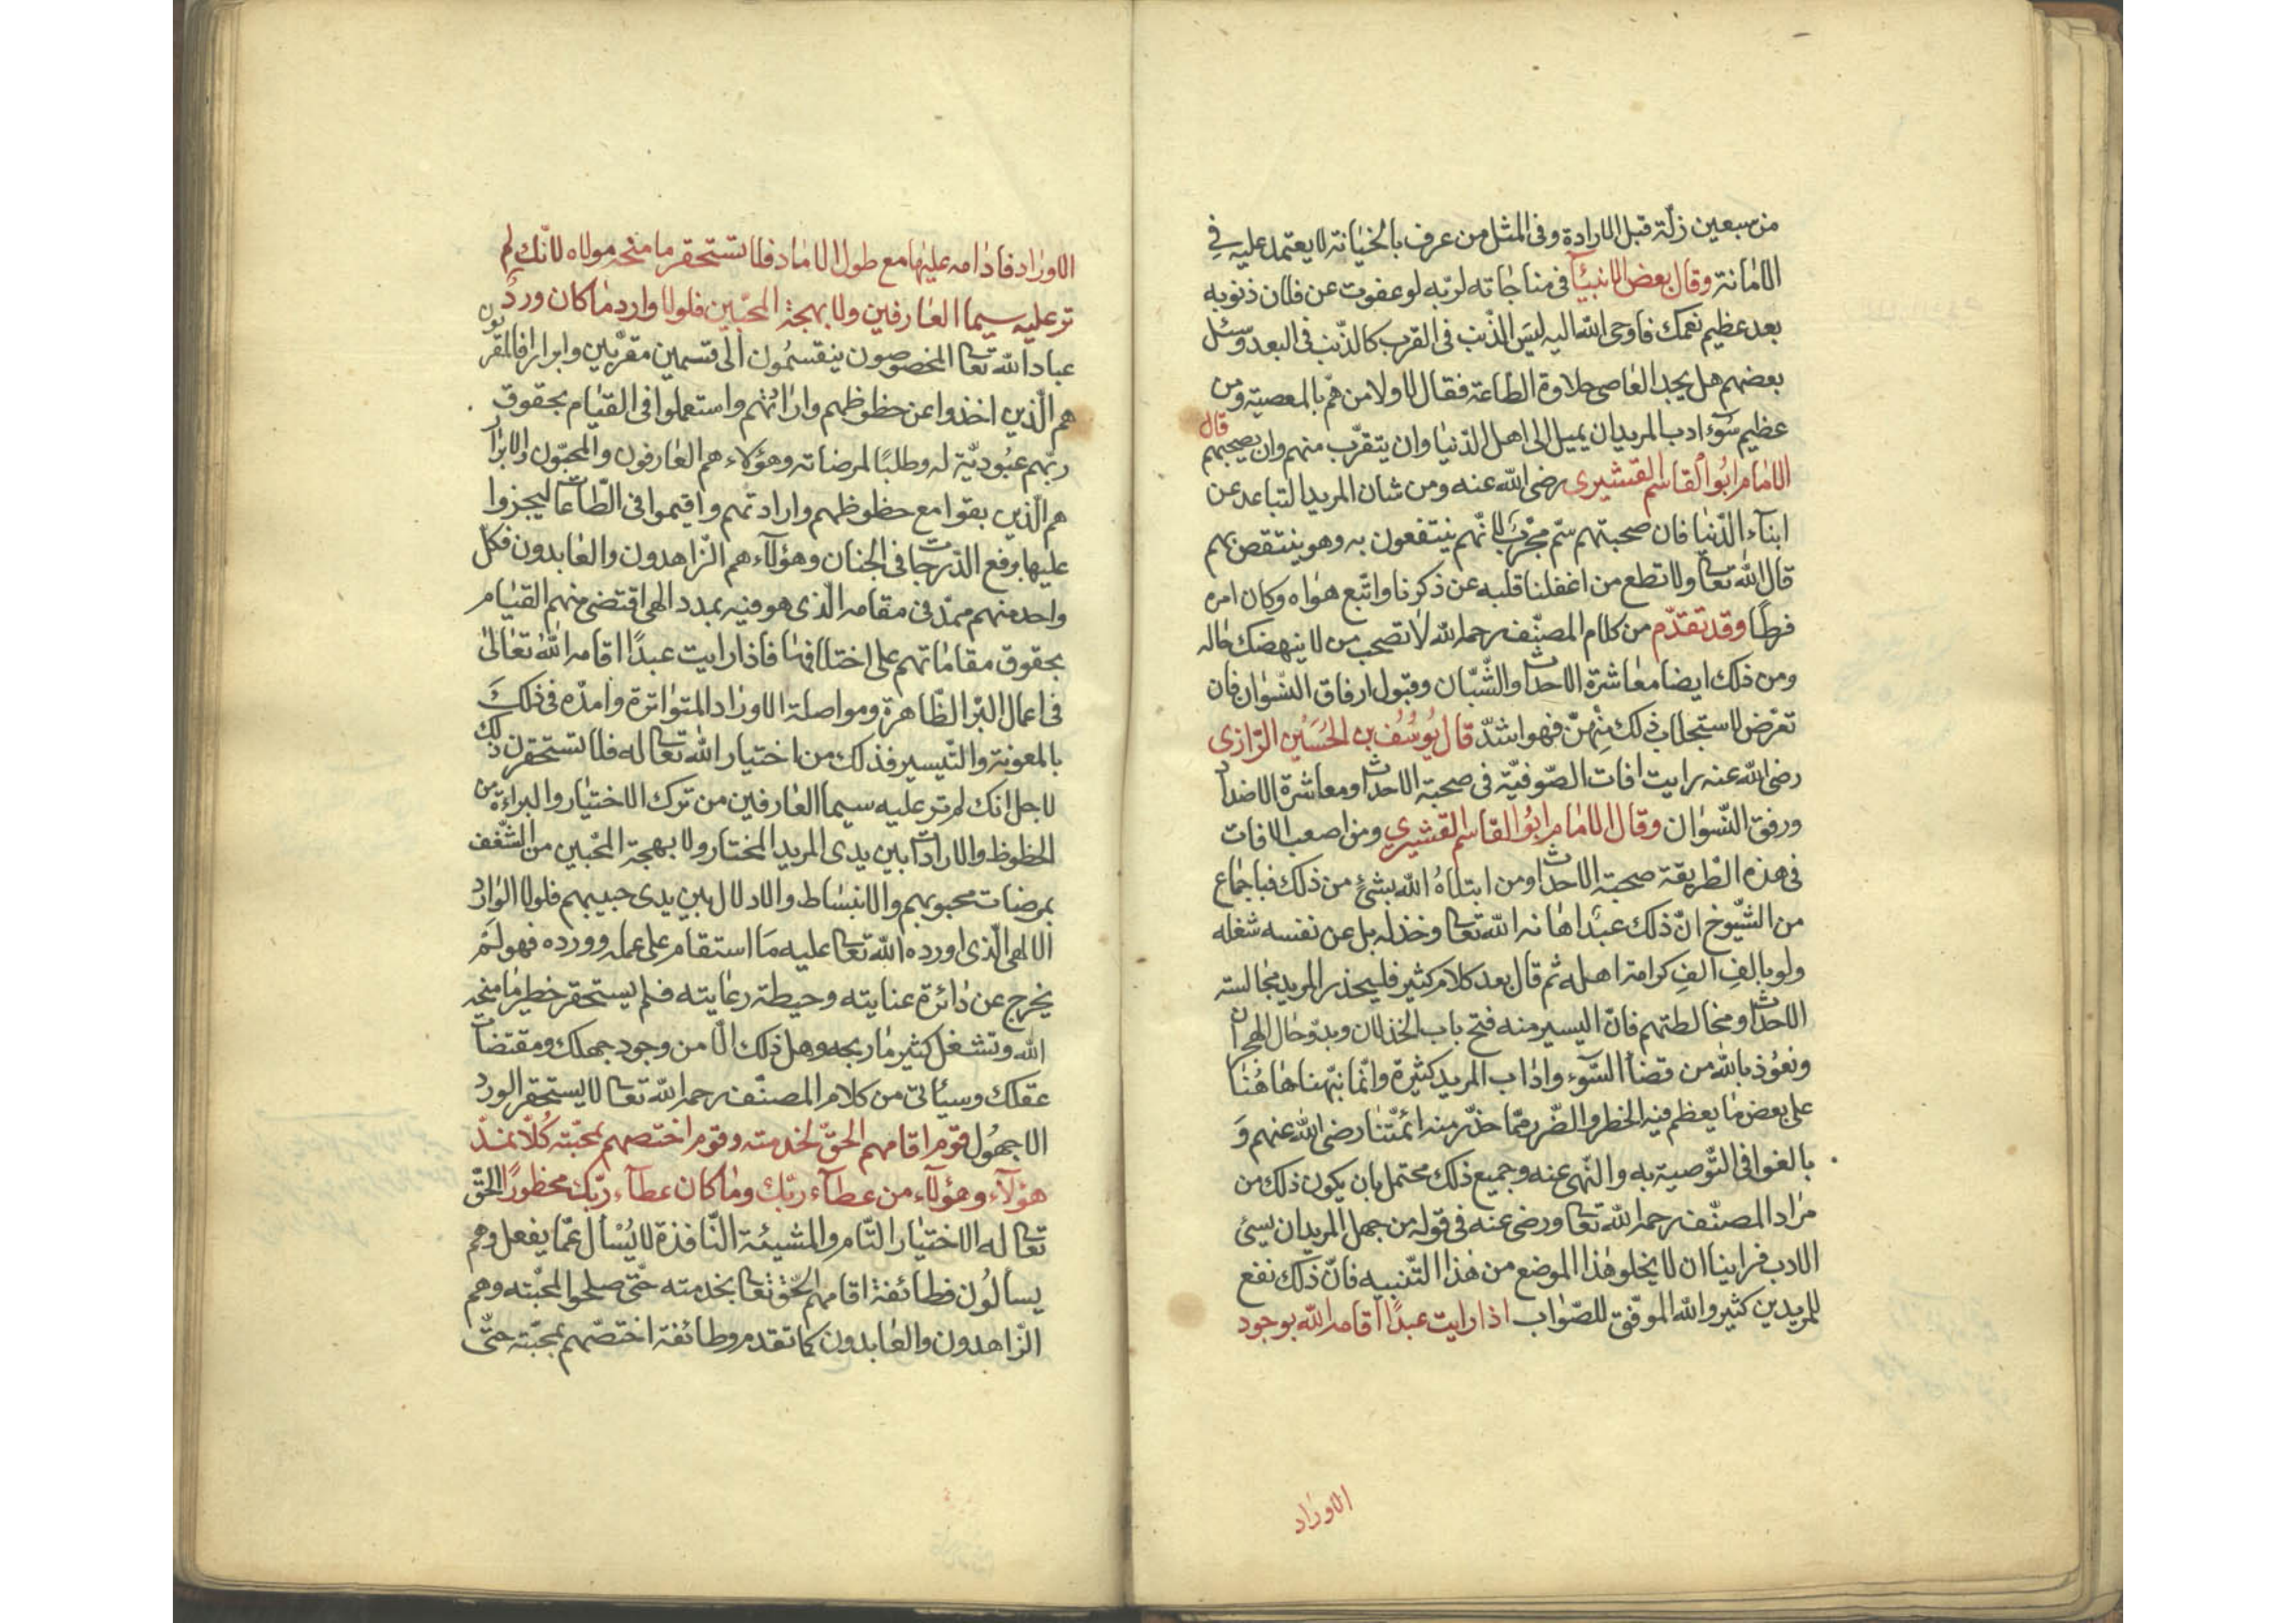 من سبعين زلّة قبل الارادة وفى المثل من عرف بالخيانة لا يعتمد عليه في
الامانة وقال بعض الانبيآء فى مناجاته لربّه لو عفوت عن فلان ذنوبه
بعد عظيم نعمك فاوحى الله اليه ليسَ الذّنب فى القرب كالذّنب فى البعد وسئل
بعضهم هل يجد العاصى حلاوة الطّاعة فقال لا ولا من همّ بالمعصية ومن
عظيم سوء ادب المريد ان يميل الى اهل الدّنيا وان يتقرّب منهم وان يصحبهم قال
الامام ابُو القاسم القشيرى رضى الله عنه ومن شان المريد التباعد عن
ابنآء الدّنيا فان صحبتهم سمّ مجرّب لانّهم ينتفعون به وهو ينتقص بهم
قال الله تعا ولا تطع من اغفلنا قلبه عن ذكرنا واتّبع هواه وكان امره
فرطا وقد تقدّم من كلام المصنّف رحمه الله لا تصحب من لا ينهضك حاله
ومن ذلك ايضا معاشرة الاحداث والشّبّان وقبول ارفاق النّسوان فان
تعرّض لاستجلاب ذلك منهنّ فهو اشدّ قال يُوسُف بن الحُسَين الرّازى
رضى الله عنه رايت افات الصّوفيّة فى صحبة الاحداث ومعاشرة الاضداد
ورفق النّسوان وقال الامام ابُو القاسم القشيري ومن اصعب الافات
فى هذه الطّريقة صحبة الاحداث ومن ابتلاهُ الله بشئٍ من ذلك فباجماع
من الشّيوخ انّ ذلك عبدٌ اهانه الله تعا وخذله بل عن نفسه شغله
ولو بالفِ الفِ كرامة اهله ثم قال بعد كلام كثير فليحذر المريد مجالسة
الاحداث ومخالطتهم فانّ اليسير منه فتح باب الخذلان وبدوّ حال الهجران
ونعُوذ بالله من قضآء السّوء واداب المريد كثيرة وانّما نبّهنا هاهُنا
على بعض ما يعظم فيه الخطر والضّرر ممّا حذّر منه ائمّتنا رضى الله عنهم وَ
بالغوا فى التّوصية به والنّهى عنه وجميع ذلك محتمل بان يكون ذلك من
مراد المصنّف رحمه الله تعا ورضى عنه فى قوله من جهل المريد ان يسئ
الادب فراينا ان لا يخلو هذا الموضع من هذا التّنبيه فانّ ذلك نفع
للمريدين كثير والله الموفّق للصّواب اذا رايت عبدًا اقامه الله بوجود
الاوراد
الاوراد فادامه عليها مع طول الامَاد فلا تستحقر ما منحه مولاه لانّك لم
تر عليه سيما العارفين ولا بهجة المحبّين فلولا وارد ما كان وردٌ
عباد الله تعا المخصوصون ينقسمُون الى قسمين مقرّبين وابرار فالمقربون
هم الّذين اخذوا عن حظوظهم واراداتهم واستعملوا فى القيام بحقوق
ربّهم عبُوديّة له وطلبًا لمرضاته وهؤلاء هم العارفون والمحبّون والابرار
هم الّذين بقوا مع حظوظهم وارادتهم واقيموا فى الطّاعات ليجزوا
عليها برفع الدّرجات فى الجنان وهؤلآء هم الزّاهدون والعابدون فكل
واحد منهم ممدّ فى مقامه الّذى هو فيه بمدد الهى اقتضى منهم القيام
بحقوق مقاماتهم على اختلافها فاذا رايت عبدًا اقامه اللهُ تعَالى
فى اعمال البرّ الظّاهرة ومواصلة الاوراد المتواترة وامدّه فى ذلكَ
بالمعونة والتّيسير فذلك من اختيار الله تعا له فلا تستحقرن ذلك
لاجل انك لم تر عليه سيما العارفين من ترك الاختيار والبراءة من
الحظوظ والارادات بين يدى المريد المختار ولا بهجة المحّبين من الشّغف
بمرضات محبوبهم والانبساط والادلال بين يدى حبيبهم فلولا الوارد
الالهى الّذى اورده الله تعا عليه مَا استقام على عمله وورده فهو لَمْ
يخرج عن دائرة عنايته وحيطة رعايته فلم يستحقر خطير ما منحه
الله وتشغل كثير ما ربحه وهل ذلك الّا من وجود جهلك ومقتضات
عقلك وسيأتى من كلام المصنّف رحمه الله تعا لا يستحقر الورد
الا جهُول قوم اقامهم الحقّ لخدمته وقوم اختصهم بمحبّته كُلّا نمدّ
هؤلآء وهؤلآء من عطآء ربّك وما كان عطآء ربّك محظورًا الحقّ
تعا له الاختيار التّام والمشيئة النّافذة لا يُسْأل عمّا يفعل وهم
يسألُون فطائفة اقامهم الحّق تعا بخدمته حتّى صلحوا لمحبّته وهم
الزّاهدون والعابدون كما تقدم وطائفة اختصّهم بمحبّته حتّى